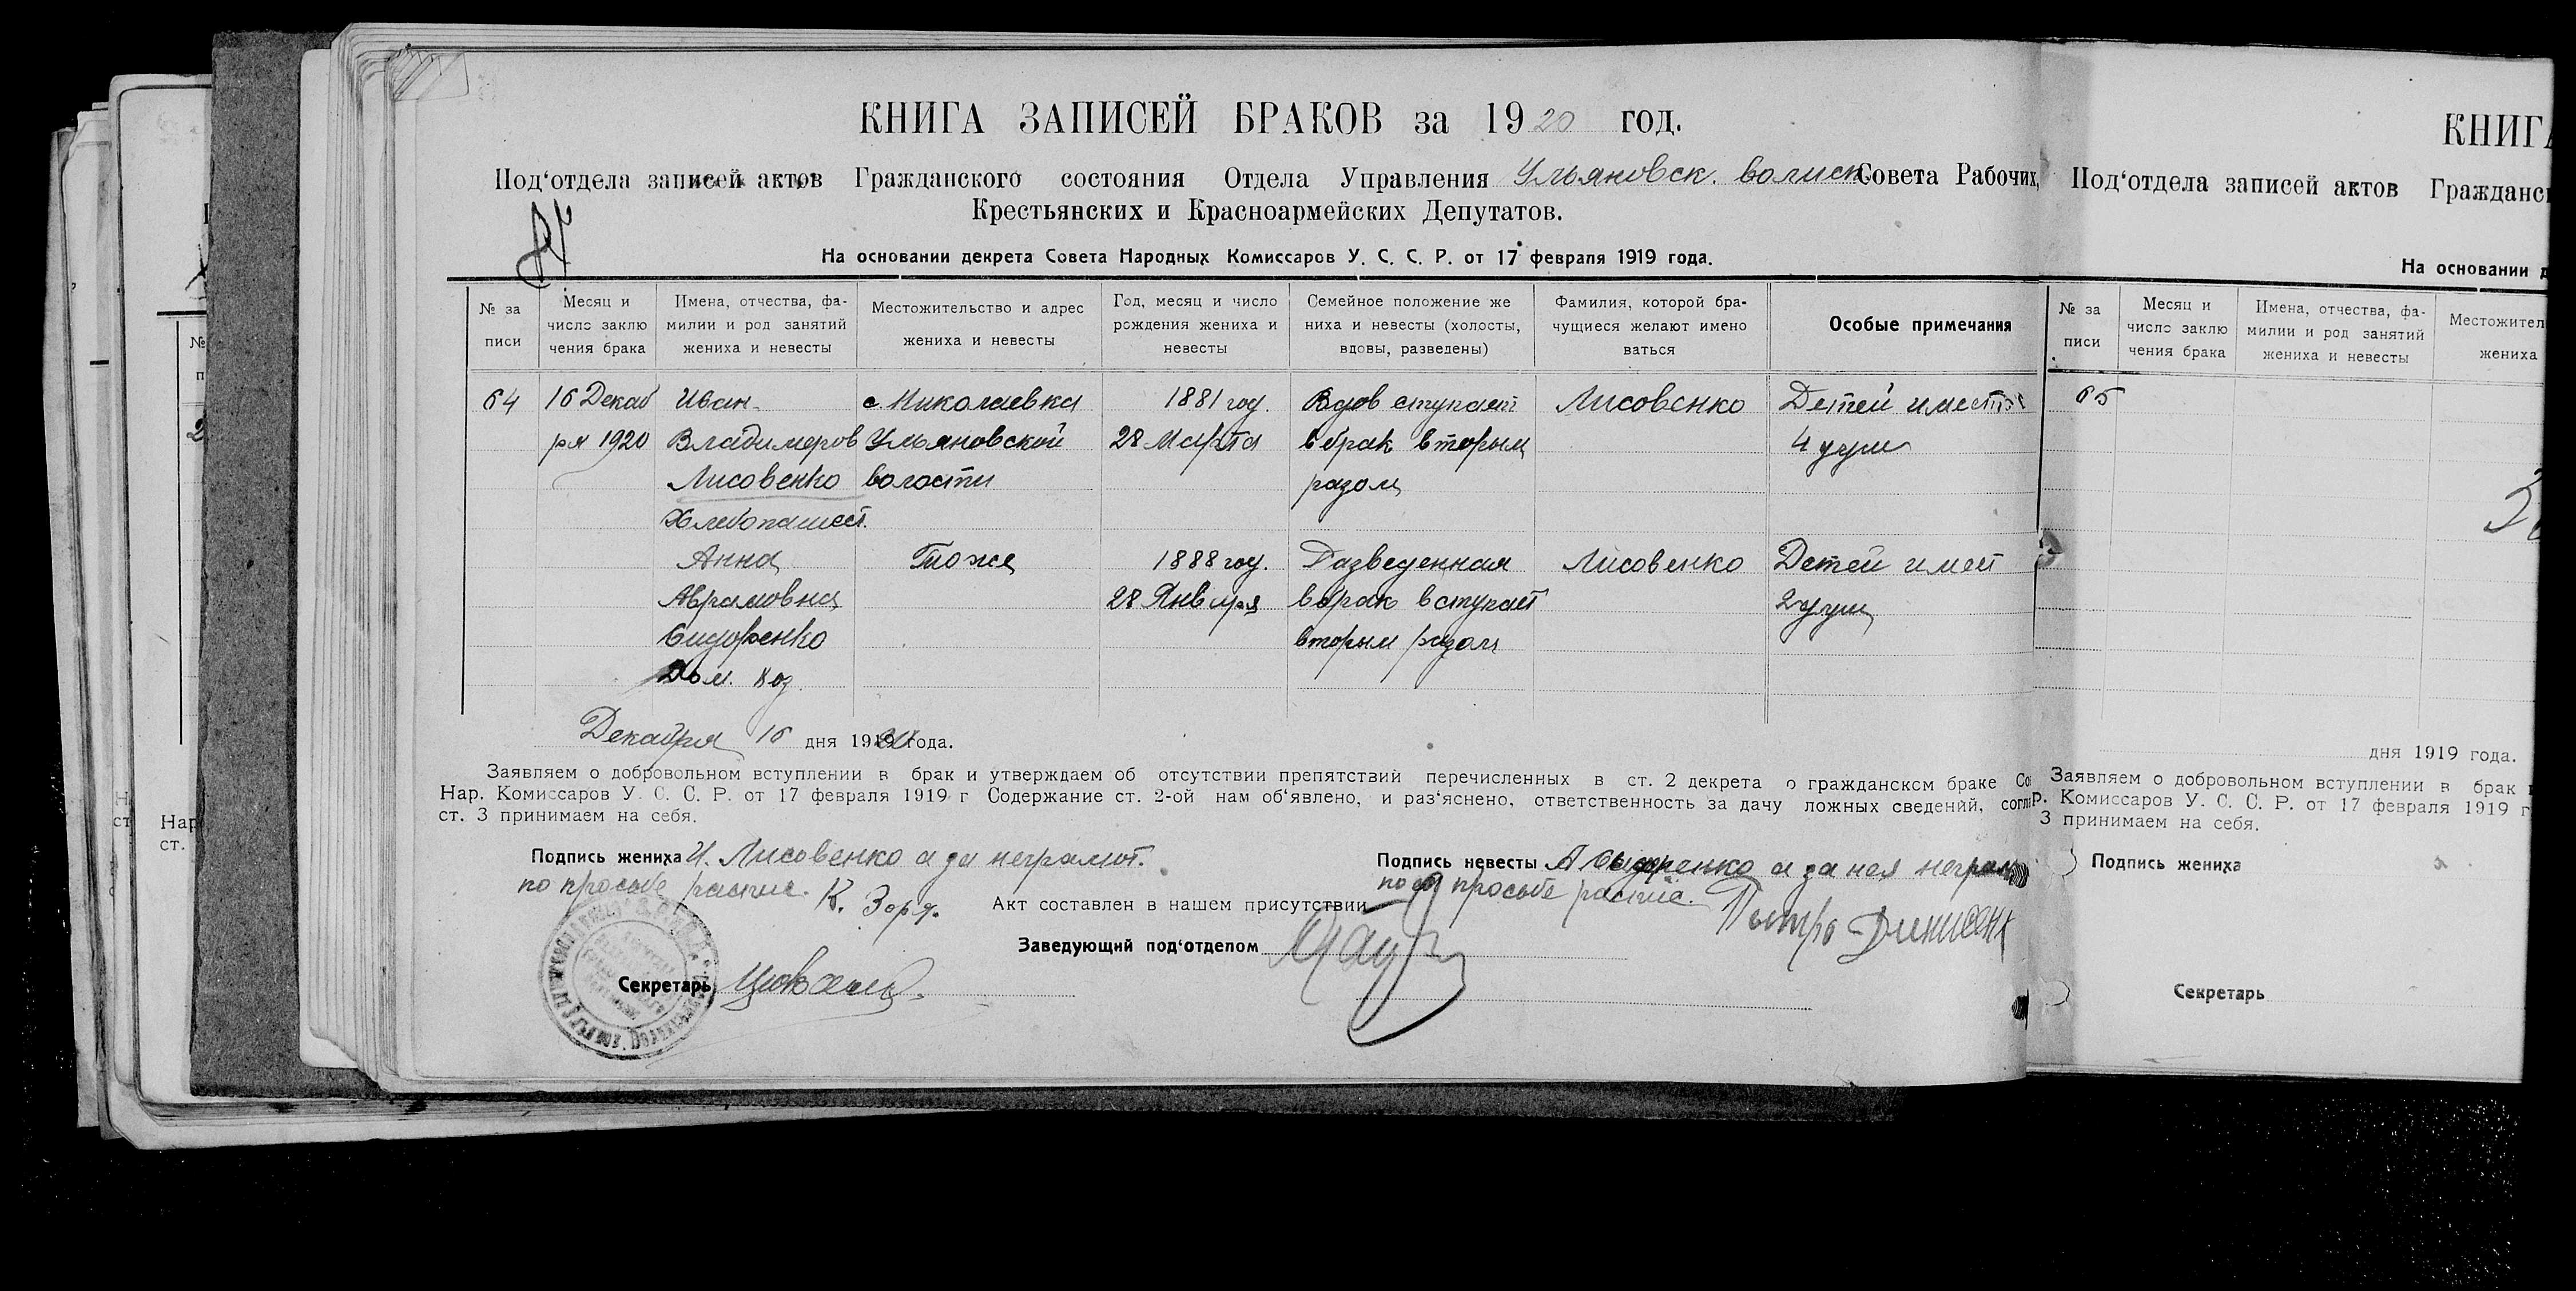 КНИГА ЗАПИСЕЙ БРАКОВ за 1920 год.
Под‘отдела записей актов Гражданского состояния Отдела Управления Ульяновск. волиск. Совета Рабочих,
Крестьянских и Красноармейских Депутатов.
На основании декрета Совета Народных Комиссаров У. С. С. Р. от 17 февраля 1919 года.
№ за писи
Месяц и число заклю чения брака
Имена, отчества, фа- милии и род занятий жениха и невесты
Местожительство и адрес жениха и невесты
Год, месяц и число рождения жениха и невесты
Семейное положение же ниха и невесты (холосты, вдовы, разведены)
Фамилия, которой бра- чущиеся желают имено ваться
Особые примечания
64 16 Декаб Иван с. Николаевка 1881 год. Вдов ступает Лисовенко Детей имеет
ря 1920 Владимеров Ульяновской 28 Марта в брак вторым 4 душ
Лисовенко волости разом
Хлебопашест.
Анна Тоже 1888 год. Разведенная Лисовенко Детей имеет
Аврамовна 28 Января в брак вступает 2 душ
Сидоренко вторым разом
Дом. хоз.
Декабря 16 дня 1920 года.
Заявляем о добровольном вступлении в брак и утверждаем об отсутствии препятствий перечисленных в ст. 2 декрета о гражданском браке Со
Нар. Комиссаров У. С. С. Р. от 17 февраля 1919 г Содержание ст. 2-ой нам об‘явлено, и раз‘яснено, ответственность за дачу ложных сведений, согл
ст. 3 принимаем на себя.
Подпись жениха И. Лисовенко а за неграмот.
по просьбе распис. К. Зоря.
Подпись невесты А Сидоренко а за нея неграм
по ея просьбе распис.
Акт составлен в нашем присутствии
Заведующий под‘отделом
Секретарь
КНИГА
Под‘отдела записей актов Гражданс
На основании д
№ за писи
Месяц и число заклю чения брака
Имена, отчества, фа- милии и род занятий жениха и невесты
Местожител
жениха
65
дня 1919 года.
Заявляем о добровольном вступлении в брак
р. Комиссаров У. С. С. Р. от 17 февраля 1919 г
3 принимаем на себя.
Подпись жениха
Секретарь